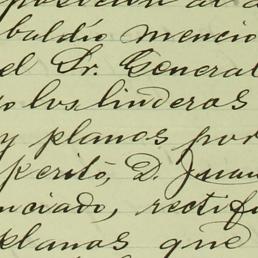 posicion al a
baldío mencio
el Sr. General
to los linderos
y planos por
perito, D. Juan
nciado, rectifi
planos que